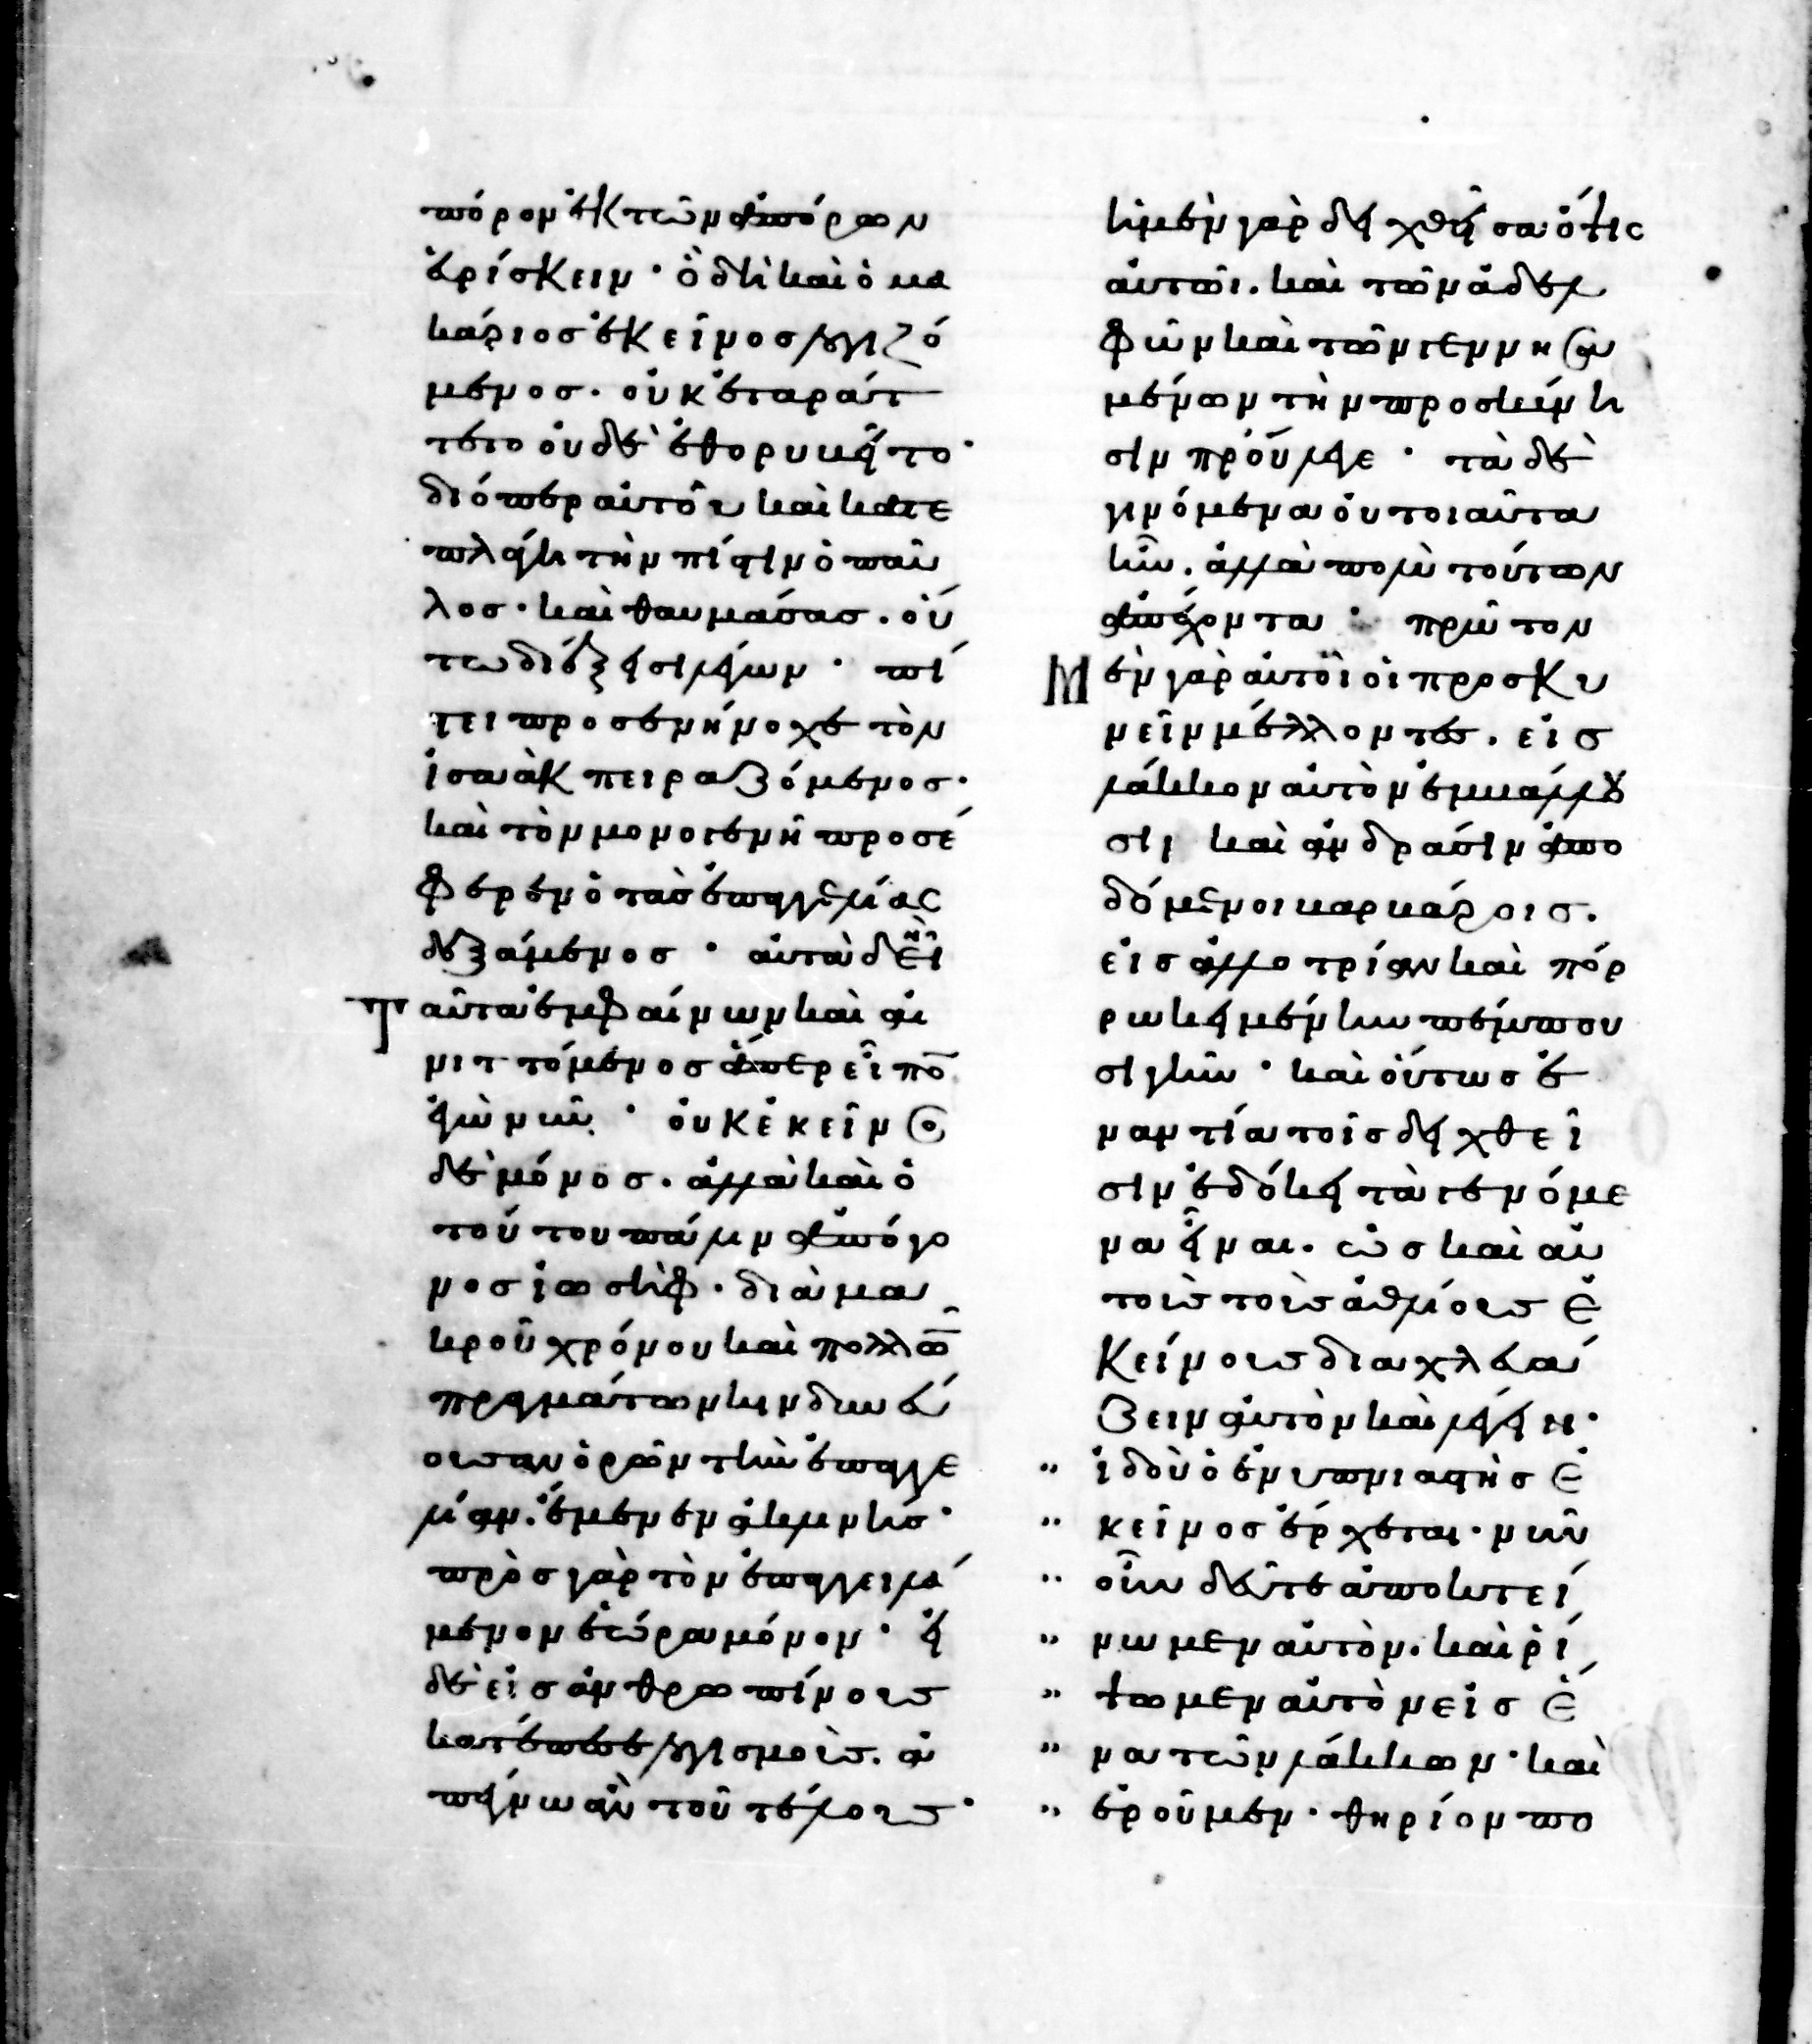 πόρον ἐκ τῶν ἀπόρων
εὑρίσκειν· ὃ δὴ καὶ ὁ μα
κάριος ἐκεῖνος λογιζό
μενος. οὐκ ἐταράτ
τετο οὐδὲ ἐθορυβεῖτο·
διόπερ αὐτοῦ καὶ κατε
πλάγη τὴν πίστιν ὁ παῦ
λος· καὶ θαυμάσας. οὕ
τω διέξεισι λέγων· πί
στει προσενήνοχε τὸν
ἰσαὰκ πειραζόμενος·
καὶ τὸν μονογενῆ προσέ
φερεν ὁ τὰς ἐπαγγελίας
δεξάμενος· αὐτὰ δὴ
ταῦτα ἐμφαίνων καὶ αἰ
νιττόμενος ἅπερ εἶπον
ἐγὼ νῦν· οὐκ ἐκεῖνος
δὲ μόνος. ἀλλὰ καὶ ὁ
τούτου πάλιν ἀπόγο
νος ἰωσὴφ· διὰ μα
κροῦ χρόνου καὶ πολλῶν
πραγμάτων κινδυνεύ
ουσαν ὁρῶν τὴν ἐπαγγε
λίαν. ἔμενεν ἀκλινὴς·
πρὸς γὰρ τὸν ἐπαγγειλά
μενον ἑώρα μόνον· εἰ
δὲ εἰς ἀνθρωπίνους
κατέπεσε λογισμοὺς. ἀ
πέγνω ἂν τοῦ τέλους·
κημὲν γὰρ δειχθεῖσα ὄψις
αὐτῶι. καὶ τῶν ἀδελ
φῶν καὶ τῶν γεγεννηκό
μένων τὴν προσκύνη
σιν πρὔλεγε· τὰ δὲ
γινόμενα οὐ τοιαῦτα
ἦν. ἀλλὰ πολὺ τούτων
ἀπέχοντα· πρῶτον
μὲν γὰρ αὐτοὶ οἱ προσκυ
νεῖν μέλλοντες. εἰς
λάκκον αὐτὸν ἐμβάλλου
σι καὶ ἀνδράσιν ἀπο
δόμενοι βαρβάροις.
εἰς ἀλλοτρίαν καὶ πόρ
ρω κειμένην πέμπου
σι γῆν· καὶ οὕτως ἐ
ναντία τοῖς δειχθεῖ
σιν ἐδόκει τὰ γενόμε
να εἶναι. ὡς καὶ αὐ
τοὺς τοὺς ἀθλίους ἐ
κείνους διαχλευά
ζειν αὐτὸν καὶ λέγειν·
" ἰδοὺ ὁ ἐνυπνιαστὴς ἐ
" κεῖνος ἔρχεται· νῦν
" οὖν δεῦτε ἀποκτεί
" νωμεν αὐτὸν. καὶ ῥί
" ψωμεν αὐτὸν εἰς ἕ
" να τῶν λάκκων· καὶ
" ἐροῦμεν· θηρίον πο